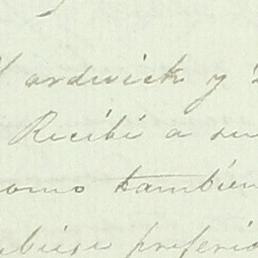 Hardwick y
Recibí a su
como también
ubiese preferid